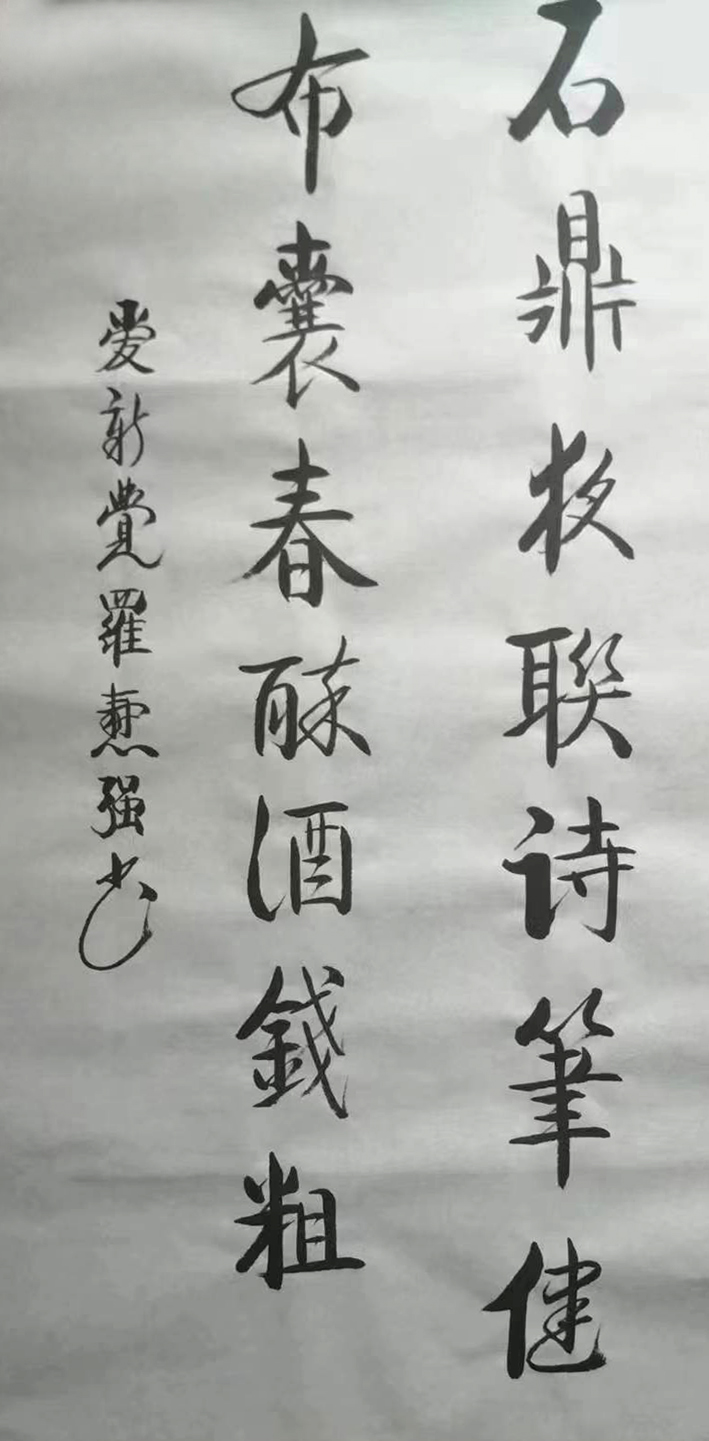 石鼎夜聯诗筆健
布囊春醉酒錢粗
愛新覺羅强书